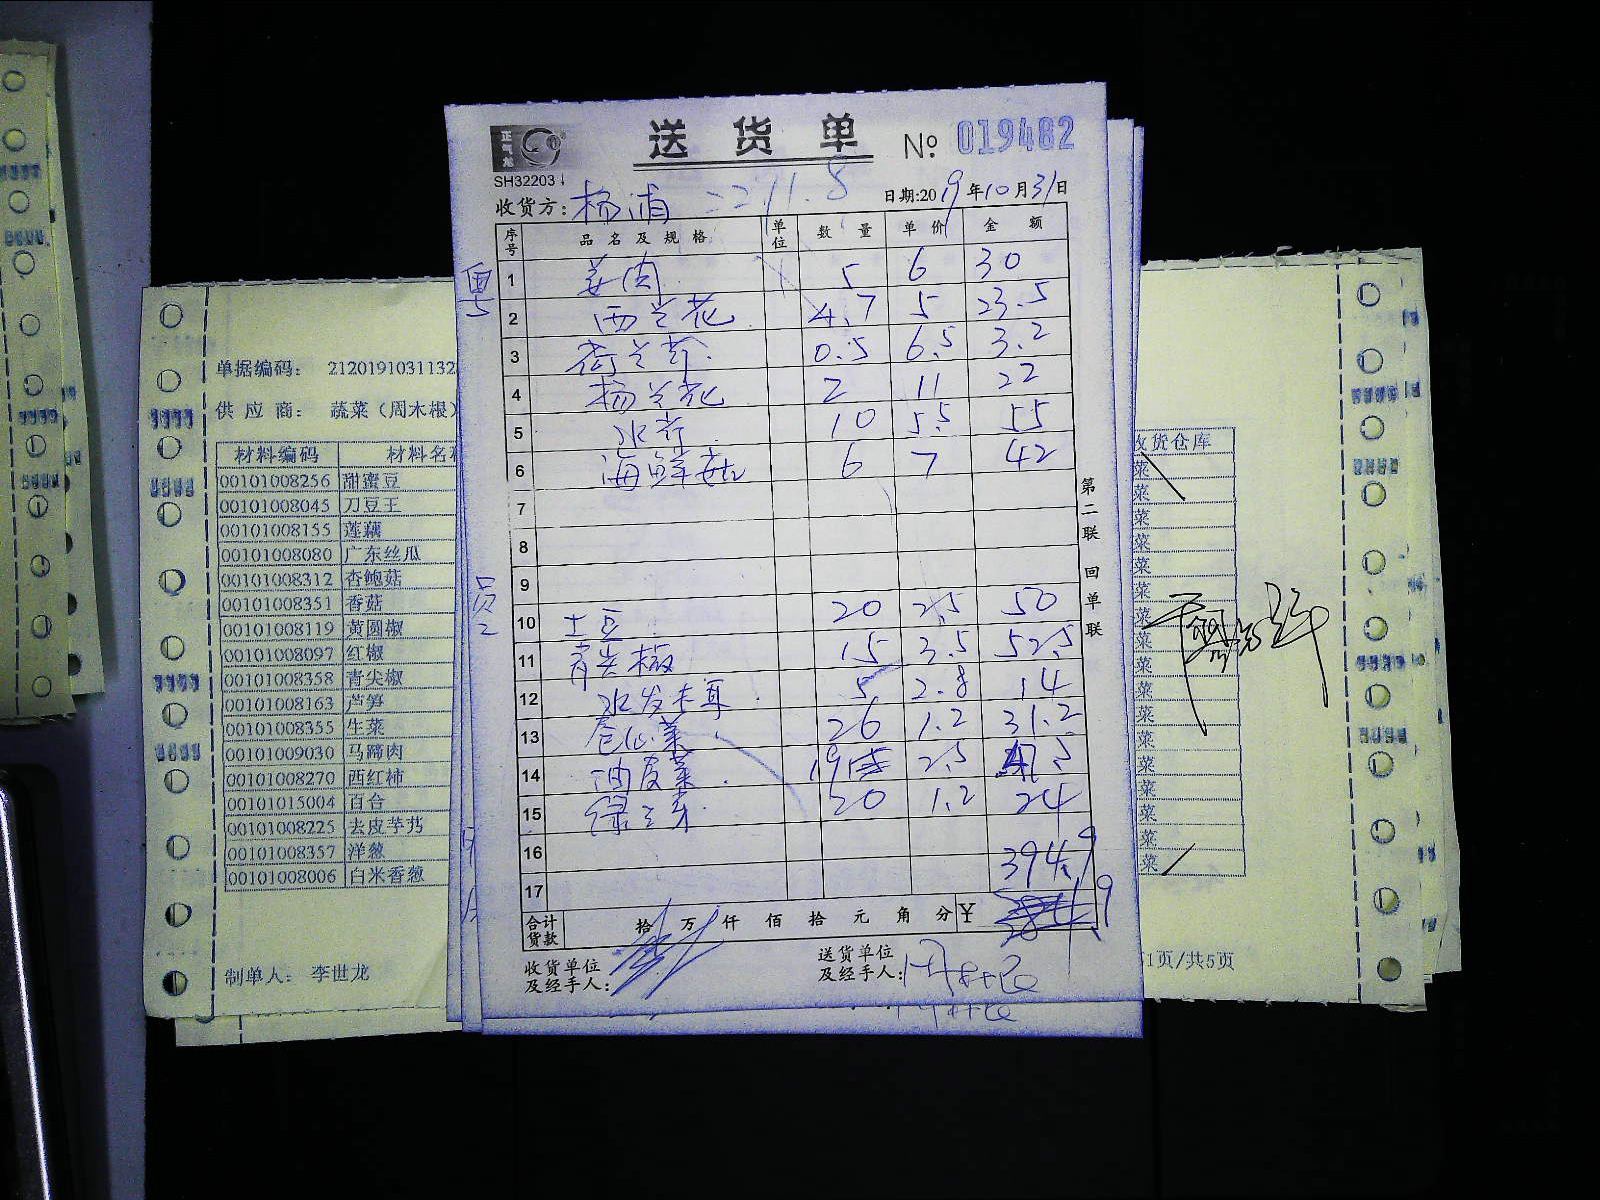 送货单 № 019482
正气龙
SH32203
收货方: 杨浦 2211.8 日期:2019年10月31日
序号 品名及规格 单位 数量 单价 金额
粤
1 姜肉 5 6 30
2 西兰花 4.7 5 23.5
3 荷兰芹 0.5 6.5 3.2
4 杨兰花 2 11 22
5 水芹 10 5.5 55
6 海鲜菇 6 7 42
7
8
9
员
10 土豆 20 2.5 50
11 青尖椒 15 3.5 52.5
12 水发木耳 5 2.8 14
13 卷心菜 26 1.2 31.2
14 油麦菜 19 2.5 47.5
15 绿豆芽 20 1.2 24
16 394.9
17
合计货款 拾 万 仟 佰 拾 元 角 分 ¥
收货单位及经手人:
送货单位及经手人:
第二联 回单联
单据编码: 2120191031132
供应商: 蔬菜(周木根)
材料编码 材料名称
00101008256 甜蜜豆
00101008045 刀豆王
00101008155 莲藕
00101008080 广东丝瓜
00101008312 杏鲍菇
00101008351 香菇
00101008119 黄圆椒
00101008097 红椒
00101008358 青尖椒
00101008163 芦笋
00101008355 生菜
00101009030 马蹄肉
00101008270 西红柿
00101015004 百合
00101008225 去皮芋艿
00101008357 洋葱
00101008006 白米香葱
制单人: 李世龙
收货仓库
菜
菜
菜
菜
菜
菜
菜
菜
菜
菜
菜
菜
菜
菜
菜
菜
菜
1页/共5页